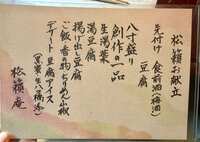 松籟お献立
先付け 食前酒(梅酒)
豆腐
八寸盛り
創作の一品
生湯葉
湯豆腐
揚げ出し豆腐
ご飯 香の物 ちりめん山椒
デザート 豆腐アイス
(黒蜜・生八橋・添)
松籟庵